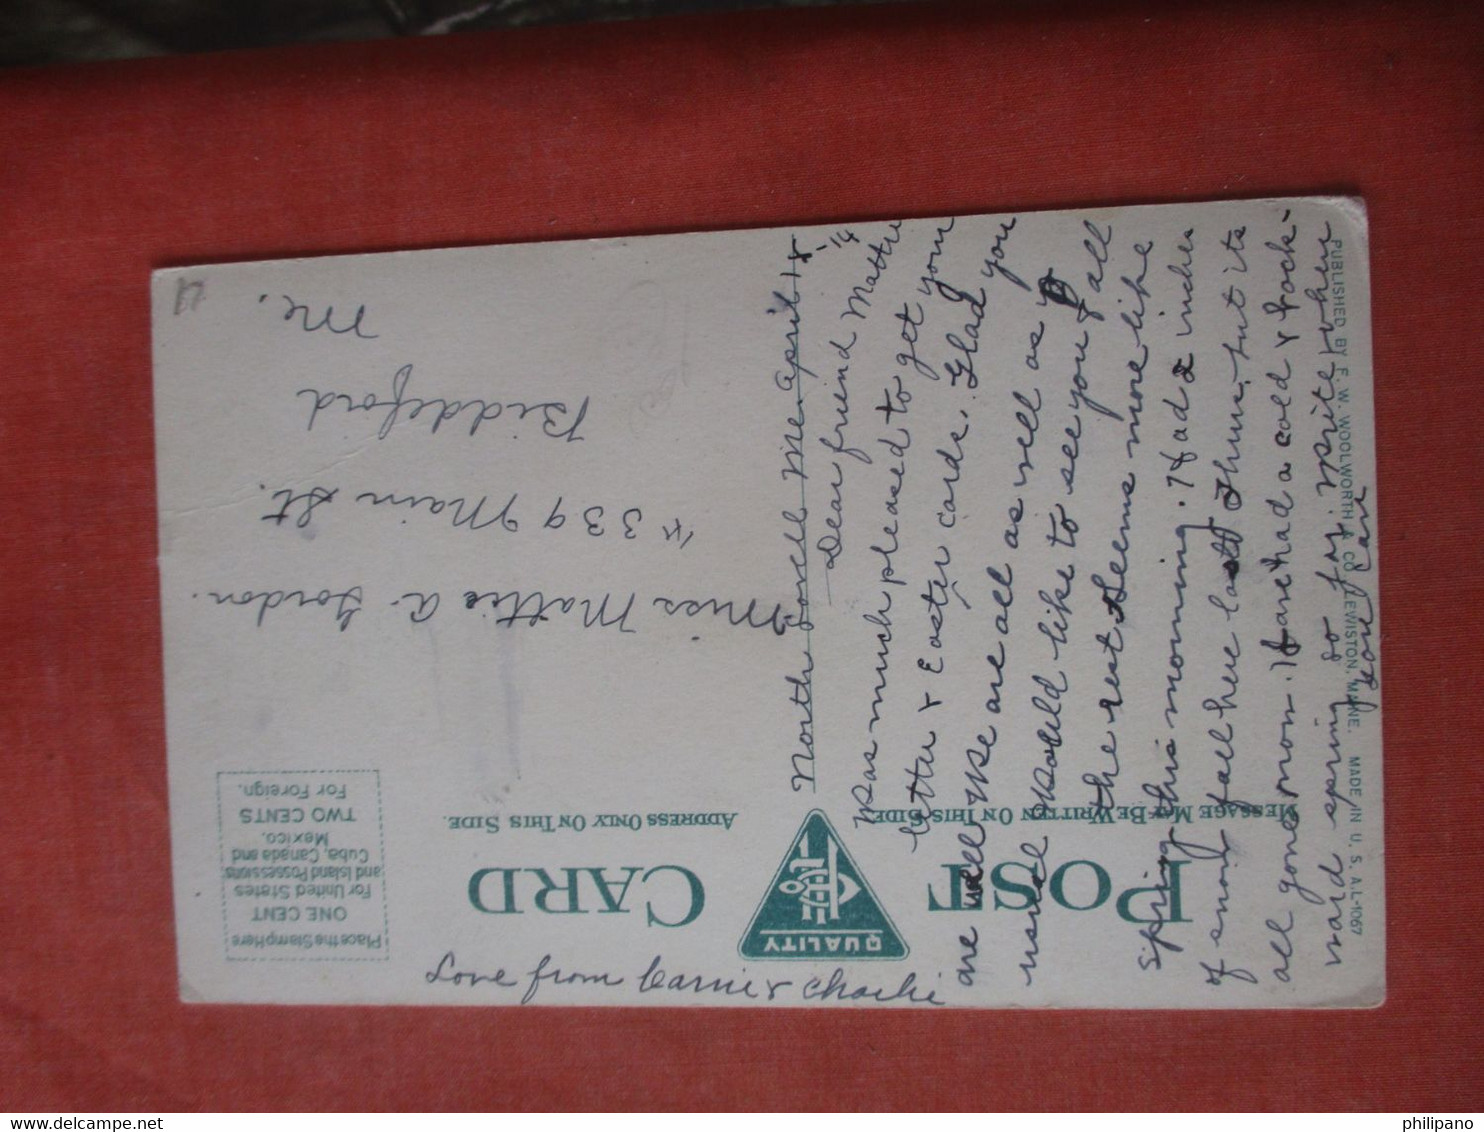 Place the Stamp Here
ONE CENT
For United States
and Island Possessions
Cuba, Canada and
Mexico.
TWO CENTS
For Foreign.
POST CARD
QUALITY
MESSAGE MAY BE WRITTEN ON THIS SIDE
ADDRESS ONLY ON THIS SIDE.
Miss Mattie A. Gordon.
339 Main St.
Biddeford
Me.
North Lovell Me April 18
Dear friend Mattie
Was much pleased to get your
letter & Easter cards. Glad you
are well We are all as well as
usual Would like to see you & all
the rest Seems more like
spring this morning. Had 2 inches
of snow fall here last Thurs, but its
all gone now. have had a cold & back-
ward spring so far. Write when
you can
Love from Carrie & Charlie
PUBLISHED BY F. W. WOOLWORTH & CO., LEWISTON, MAINE. MADE IN U. S. A. L-1067
philipano